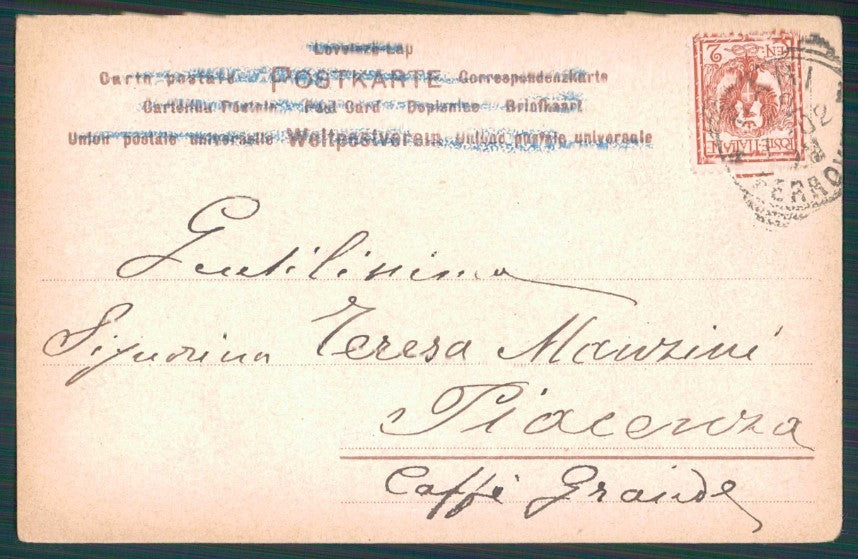 Levelező-Lap
Carte postale POSTKARTE Correspondenzkarte
Cartolina Postale Post Card Dopisnice Briefkaart
Union postale universelle Weltpostverein Unione postale universale
2 CEN
POSTE ITALIANE
02
FERROV
Gentilissima
Signorina Teresa Manzini
Piacenza
Caffè Grande